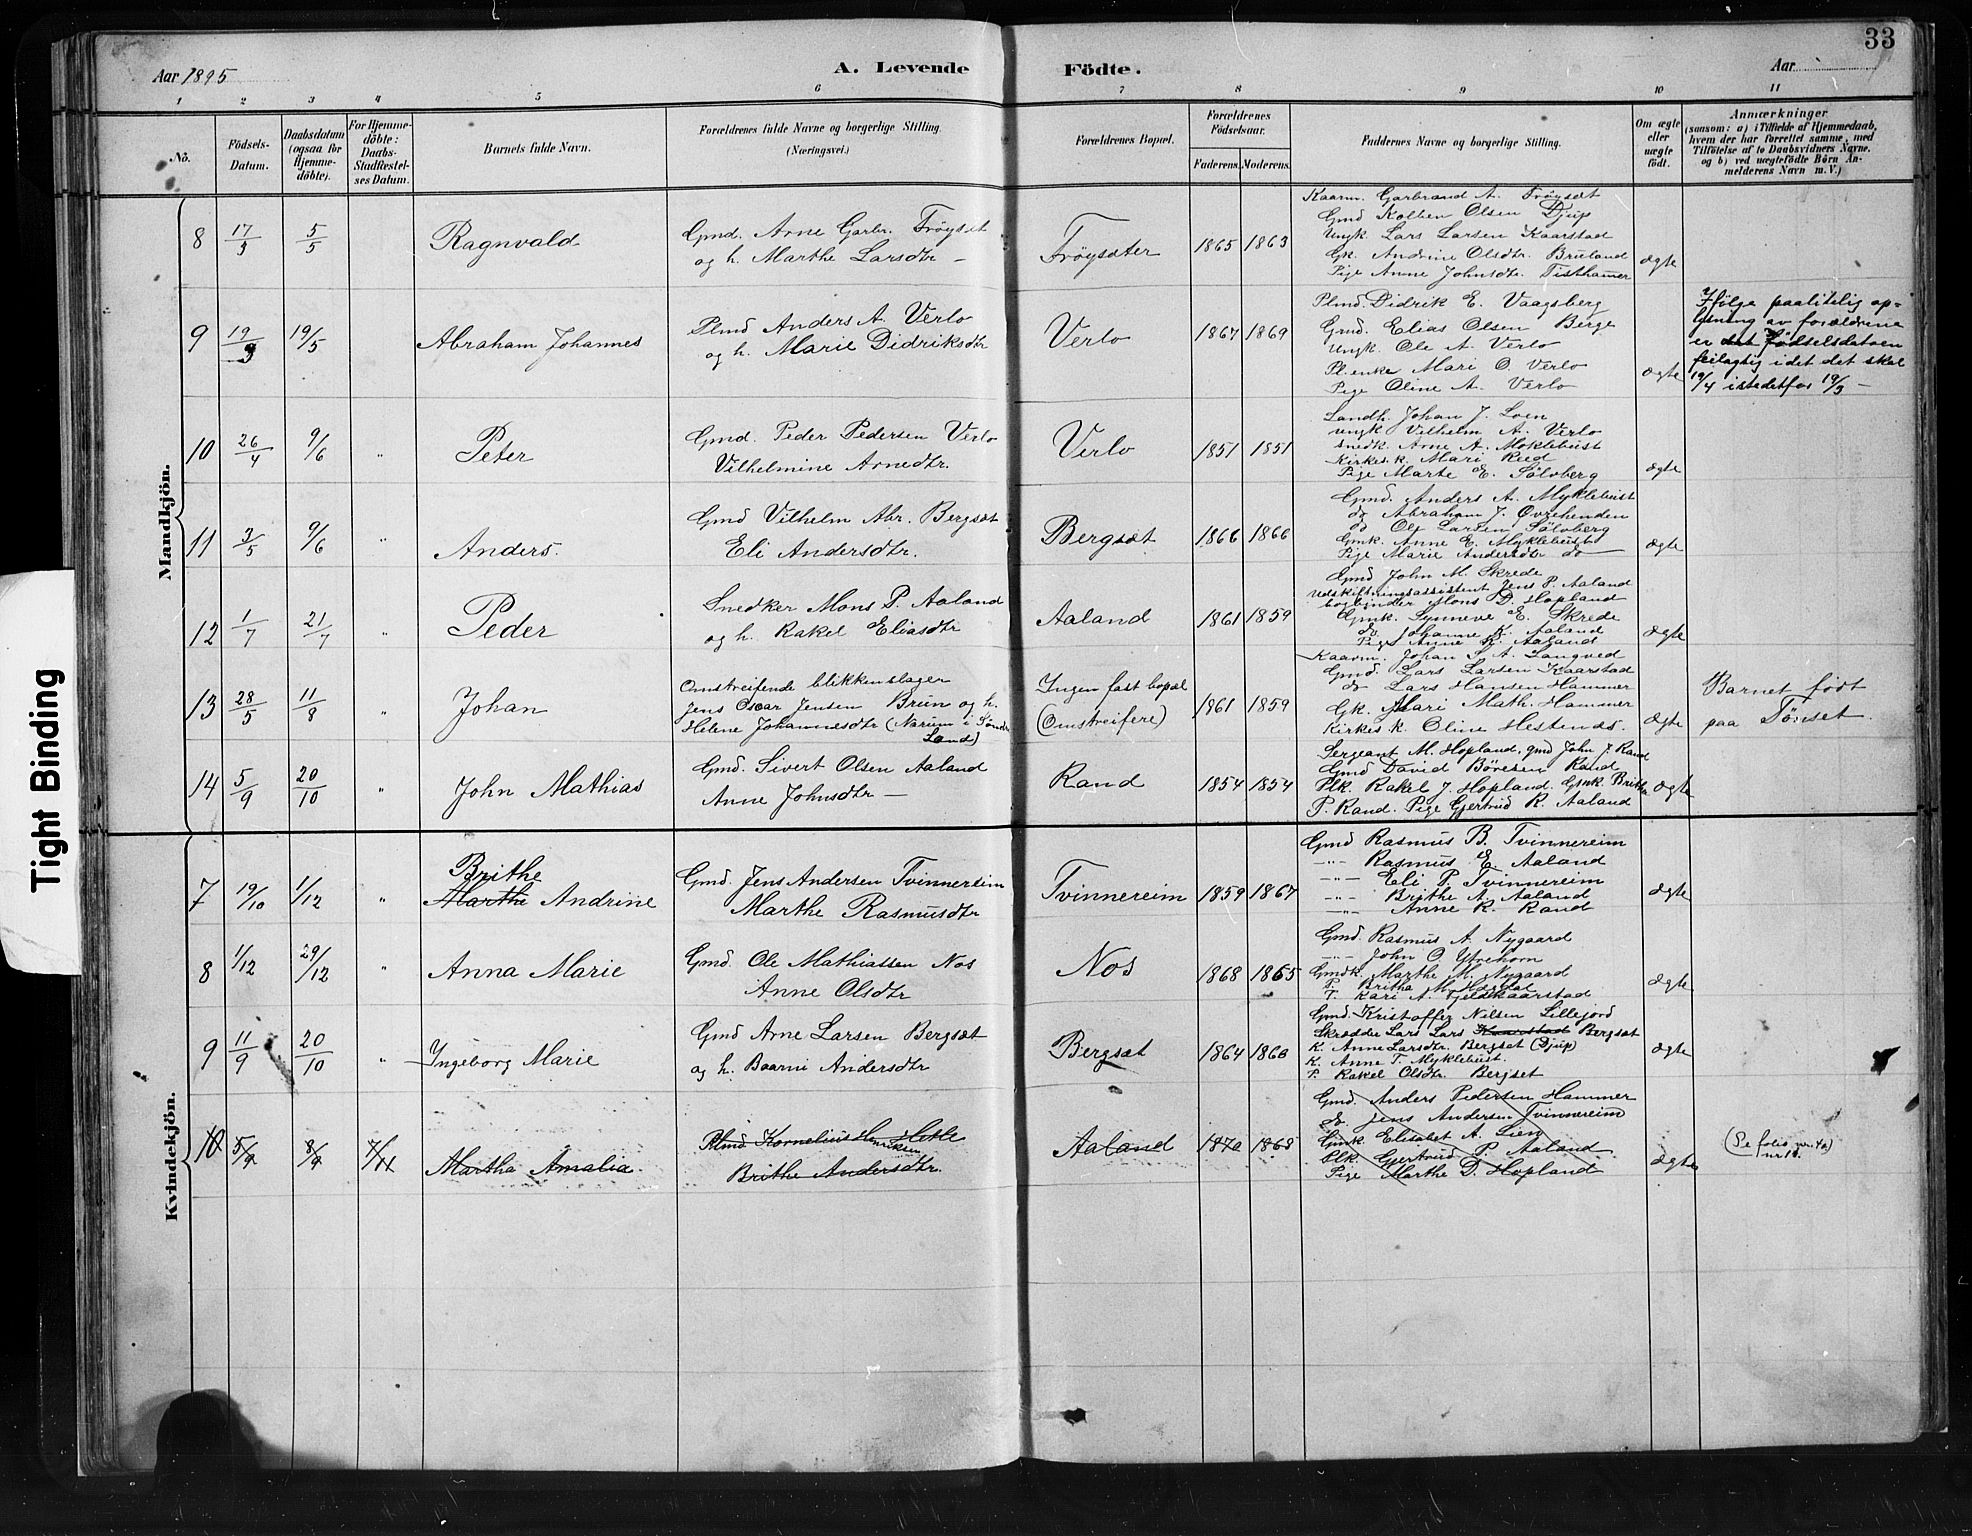 33
Aar 1895
A. Levende
Födte.
Aar
1 2 3 4 5 6 7 8 9 10 11
No.
Födsels-
Datum.
Daabsdatum
(ogsaa for
Hjemme-
döbte).
For Hjemme-
döbte:
Daabs-
Stadfæstel-
ses Datum.
Barnets fulde Navn.
Forældrenes fulde Navne og borgerlige Stilling.
(Næringsvei.)
Forældrenes Bopæl.
Forældrenes
Födselsaar.
Faderens. Moderens.
Faddernes Navne og borgerlige Stilling.
Om ægte
eller
uægte
født.
Anmærkninger
(saasom: a) i Tilfælde af Hjemmedaab,
hvem der har forrettet samme, med
Tilföielse af to Daabsvidners Navne.
og b) ved uægtefödte Börn An-
melderens Navn m. V.)
Mandkjön.
8 17/3 5/5 Ragnvald
Gmd. Arne Garbr. Fröyset
og h. Marthe Larsdtr –
Fröysæter 1865 1863
Kaarm. Garbrand A. Fröysæt
Gmd Kolben Olsen Djup
Ungk. Lars Larsen Kaarstad
Gk. Andrine Olsdtr. Bruland
Pige Anne Johnsdtr. Tisthamer
ægte
9 19/3 19/5 Abraham Johannes
Plmd Anders A. Verlo
og h. Marie Didriksdtr
Verlo 1867 1869
Plmd. Didrik E. Vaagsberg
Gmd. Elias Olsen Berge
Ungk. Ole A. Verlo
Pl.enke Mari O. Verlo
Pige Oline A. Verlo
ægte
Ifölge paalitelig op-
lysning av forældrene
er det Födselsdatoen
feilagtig idet det skal
19/4 istedetfor 19/3 –
10 26/4 9/6 " Peter
Gmd. Peder Pedersen Verlo
Vilhelmine Arnedtr.
Verlo 1851 1851
Landh. Johan J. Loen
ungk Vilhelm A. Verlo
Snedk. Arne A. Moklebust
Kirkes.k. Mari Reed
Pige Marte E. Sölvberg
ægte
11 3/5 9/6 " Anders.
Gmd Vilhelm Abr. Bergsæt
Eli Andersdtr.
Bergsæt 1866 1866
Gmd. Anders A. Myklebust
do Abraham J. Övrehenden
do Ole Larsen Sölvberg
Gmk. Anne E. Myklebust
Pige Marie Andersdtr do
ægte
12 1/7 21/7 " Peder
Snedker Mons P. Aaland
og h. Rakel Eliasdtr
Aaland 1861 1859
Gmd John M. Skrede
Udskiftningsassistent Jens P. Aaland
bogbinder Mons D. Hopland
Gmk. Synneve E. Skrede
do Johanne K. Aaland
Pige Anne R. Aaland
ægte
13 28/5 11/8 " Johan
Omstreifende blikkenslager
Jens Oscar Jensen Brun og h.
Helene Johannesdtr (Narum i Söndr
Land)
Ingen fast bopæl
(Omstreifere)
1861 1859
Kaarm. Johan S. A. Langved
Gmd. Lars Larsen Kaarstad
do Lars Hansen Hammer
Gk. Mari Math. Hammer
Kirkes.k. Oline Hestenes.
ægte
Barnet født
paa Tönset.
14 5/9 20/10 " John Mathias
Gmd. Sivert Olsen Aaland
Anne Johnsdtr –
Rand 1854 1854
Sergeant M. Hopland, gmd John J. Rand
Gmd David Böresen Rand
Plk. Rakel J. Hopland. Gmk. Brithe
P. Rand. Pige Gjertrud R. Aaland
ægte
Kvindekjön.
7 19/10 1/12 " Brithe
Marthe Andrine
Gmd. Jens Andersen Tvinnereim
Marthe Rasmusdtr
Tvinnereim 1859 1867
Gmd Rasmus B. Tvinnereim
–"– Rasmus E. Aaland
–"– Eli P. Tvinnereim
–"– Brithe A. Aaland
–"– Anne R. Rand
ægte
8 1/12 29/12 " Anna Marie
Gmd. Ole Mathiassen Nos
Anne Olsdtr
Nos 1868 1865
Gmd. Rasmus A. Nygaard
–"– John O. Ytrehorn
Gmdk. Marthe M. Nygaard
P. Britha M.
P. Kari A. Fjeldkaarstad
ægte
9 11/9 20/10 " Ingeborg Marie
Gmd Arne Larsen Bergsæt
og h. Baarni Andersdtr
Bergsæt 1864 1860
Gmd. Kristoffer Nilsen Lillefjord
Skrædder Lars Lars Kaarstad Bergsæt
K. Anne Larsdtr. Bergset (Djup)
K. Anne T. Myklebust.
P. Rakel Olsdtr. Bergset
ægte
10 5/9 8/9 7/11 Martha Amalia
Plmd Kornelius Henriksen Hetle
Brithe Andersdtr.
Aaland 1870 1868
Gmd. Anders Pedersen Hammer
do Jens Andersen Tvinnereim
Gmk. Elisabet A. Lien
Plk. Gjertrud P. Aaland
Pige Marthe D. Hopland
ægte
(Se folio nr. 40
nr 10.)
Tight Binding